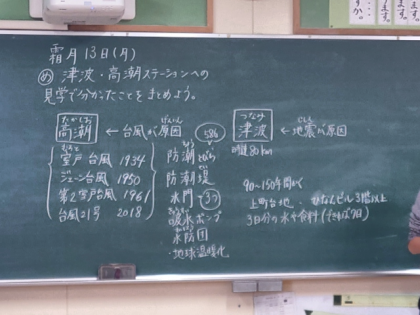 霜月13日(月)
め 津波・高潮ステーションへの
見学で分かったことをまとめよう。
たかしお
高潮 ← 台風が原因
げんいん
室戸台風 1934
ジェーン台風 1950
第2室戸台風 1961
台風21号 2018
586
防潮とびら
防潮堤
水門 3つ
ポンプ
水防団
・地球温暖化
つなみ
津波 ← 地震が原因
じしん
90〜150年間で
上町台地・ひなんビル3階以上
3日分の水や食料